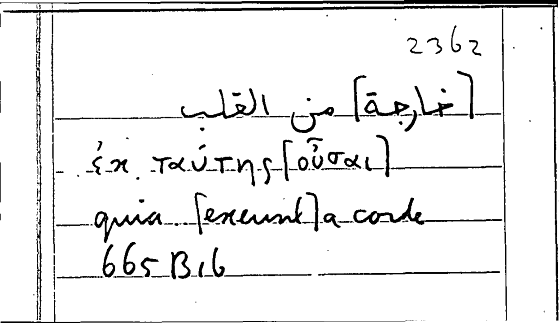 2362
[خارجة] من القلب
ἐκ ταύτης [οὖσαι]
quia [exeunt] a corde
665 B 16